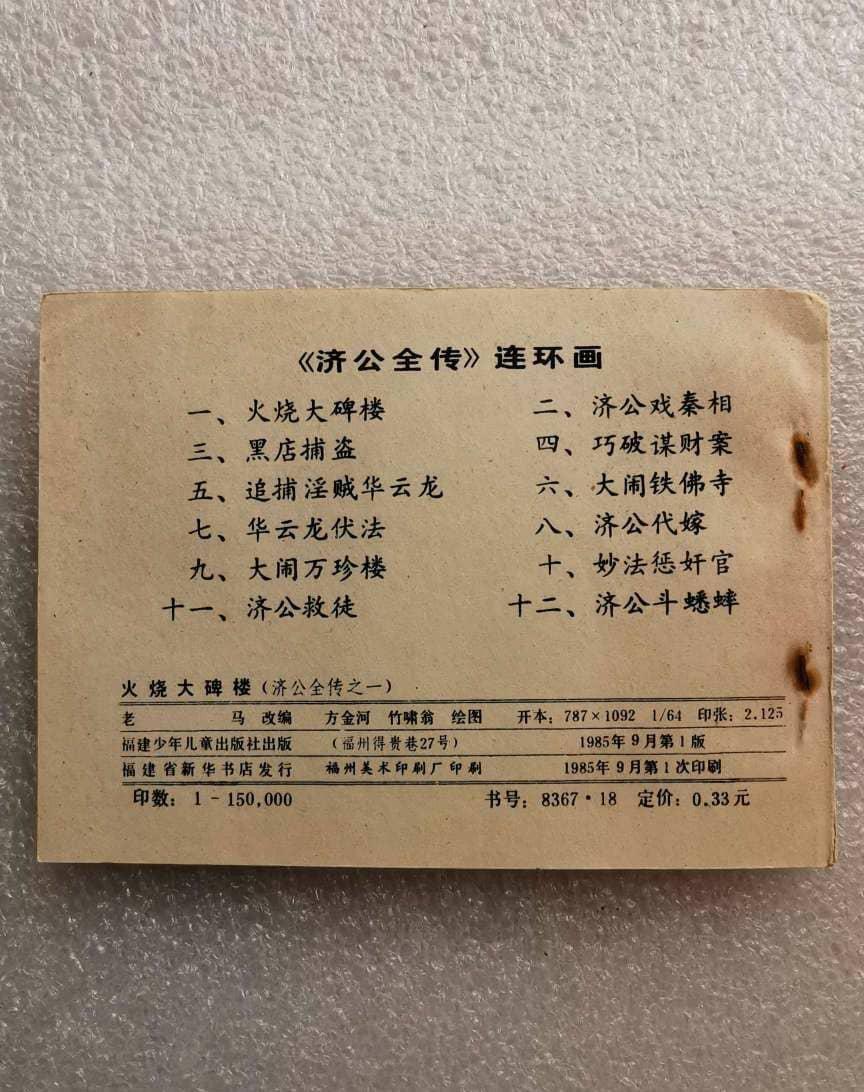 《济公全传》连环画
一、火烧大碑楼 二、济公戏秦相
三、黑店捕盗 四、巧破谋财案
五、追捕淫贼华云龙 六、大闹铁佛寺
七、华云龙伏法 八、济公代嫁
九、大闹万珍楼 十、妙法惩奸官
十一、济公救徒 十二、济公斗蟋蟀
火烧大碑楼(济公全传之一)
老 马 改编 方金河 竹啸翁 绘图 开本:787×1092 1/64 印张:2.125
福建少年儿童出版社出版 (福州得贵巷27号) 1985年9月第1版
福建省新华书店发行 福州美术印刷厂印刷 1985年9月第1次印刷
印数:1-150,000 书号:8367·18 定价:0.33元